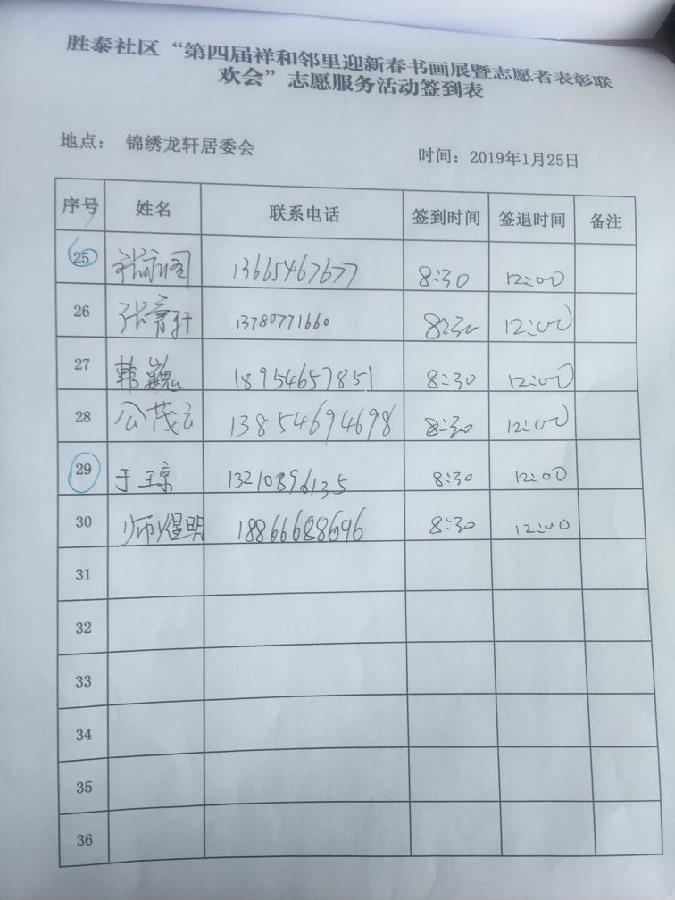 胜泰社区“第四届祥和邻里迎新春书画展暨志愿者表彰联
欢会”志愿服务活动签到表
地点： 锦绣龙轩居委会 时间：2019年1月25日
序号 姓名 联系电话 签到时间 签退时间 备注
25 13665467677 8:30 12:00
26 张青轩 13780771660 8:30 12:00
27 韩巍 18954657851 8:30 12:00
28 公茂云 13854694698 8:30 12:00
29 于琼 13210896135 8:30 12:00
30 师煜明 18866688696 8:30 12:00
31
32
33
34
35
36